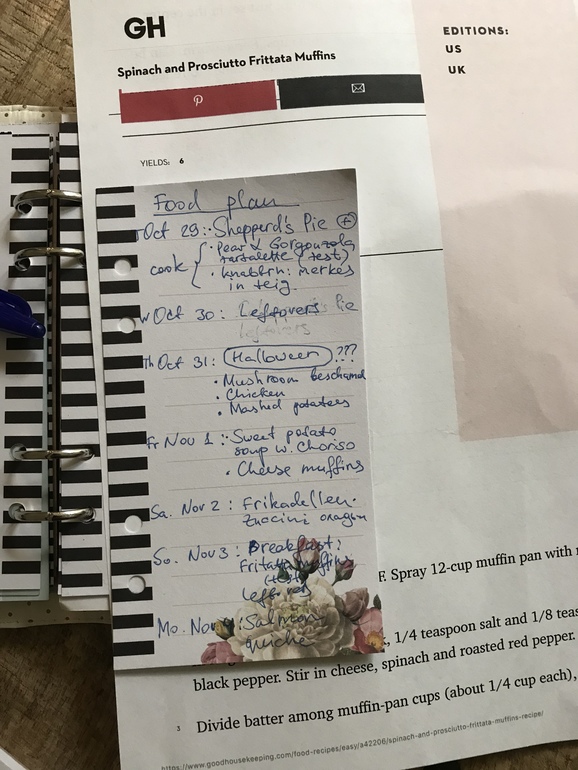 GH
EDITIONS:
US
UK
Spinach and Prosciutto Frittata Muffins
YIELDS: 6
Food plan
Oct 29: Shepperd's Pie
cook
• Pear & Gorgonzola
tartalette (test)
in teig
W Oct 30: Leftovers Pie
leftovers
Th Oct 31: Halloween ???
• Mushroom
• Chicken
• Mashed potatoes
Fr Nov 1: Sweet potato
soup w. Choriso
• Cheese muffins
Sa. Nov 2: Frikadellen.
Zuccini
So. Nov 3: Breakfast:
Fritatta muffins
(test)
leftovers
Mo. Nov: Salmon
quiche
F. Spray 12-cup muffin pan with
, 1/4 teaspoon salt and 1/8 teas
black pepper. Stir in cheese, spinach and roasted red pepper.
3 Divide batter among muffin-pan cups (about 1/4 cup each),
https://www.goodhousekeeping.com/food-recipes/easy/a42206/spinach-and-prosciutto-frittata-muffins-recipe/